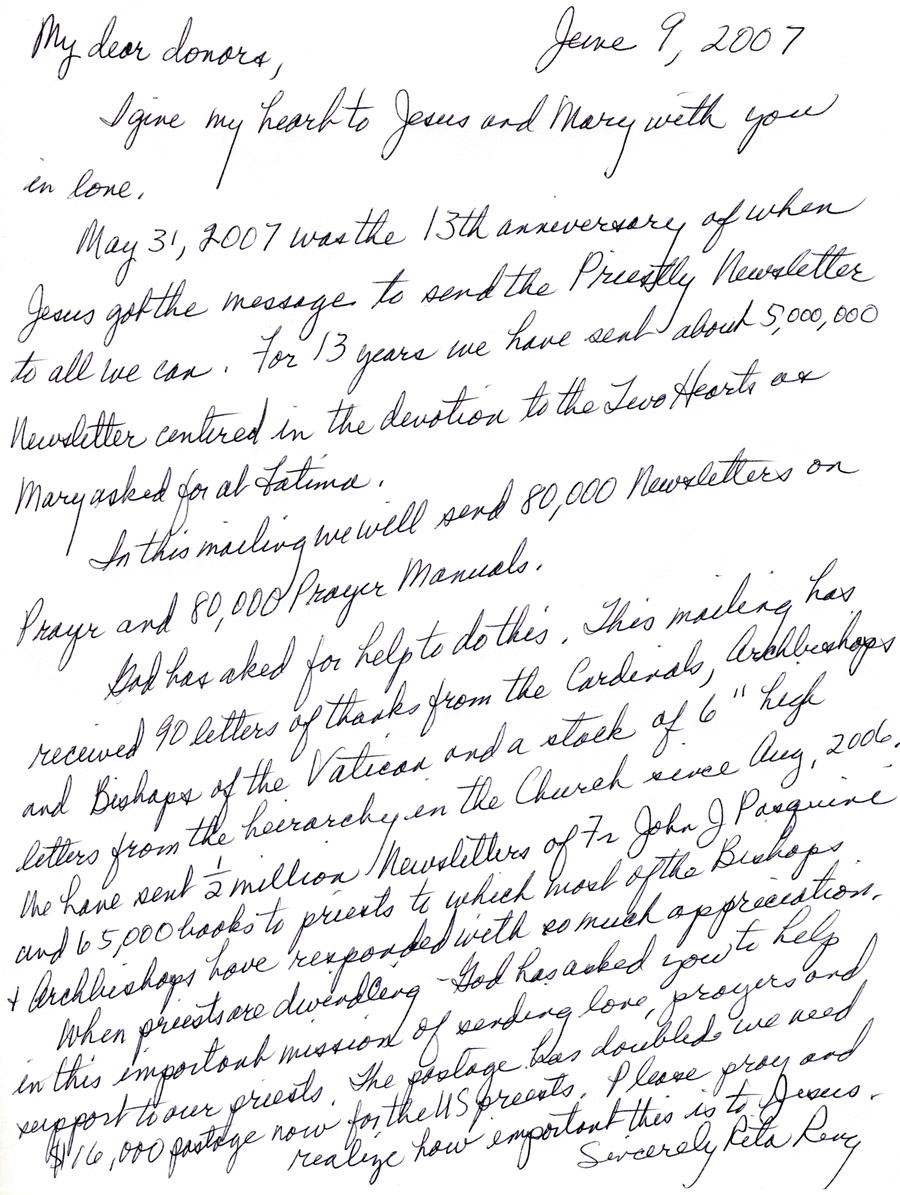 My dear donors, June 9, 2007
I give my heart to Jesus and Mary with you
in love.
May 31, 2007 was the 13th anniversary of when
Jesus got the message to send the Priestly Newsletter
to all we can. For 13 years we have sent about 5,000,000
Newsletter centered in the devotion to the Two Hearts as
Mary asked for at Fatima.
In this mailing we will send 80,000 Newsletters on
Prayr and 80,000 Prayer Manuals.
God has aked for help to do this. This mailing has
received 90 letters of thanks from the Cardinals, Archbishops
and Bishops of the Vatican and a stack of 6" high
letters from the heirarchy in the Church since Aug, 2006.
We have sent ½ million Newsletters of Fr John J Pasquini
and 65,000 books to priests to which most of the Bishops
+ Archbishops have responded with so much appreciation.
When priests are dwindling - God has asked you to help
in this important mission of sending love, prayers and
support to our priests. The postage has doubled we need
$116,000 postage now for the US priests. Please pray and
realize how important this is to Jesus.
Sincerely Rita Ring